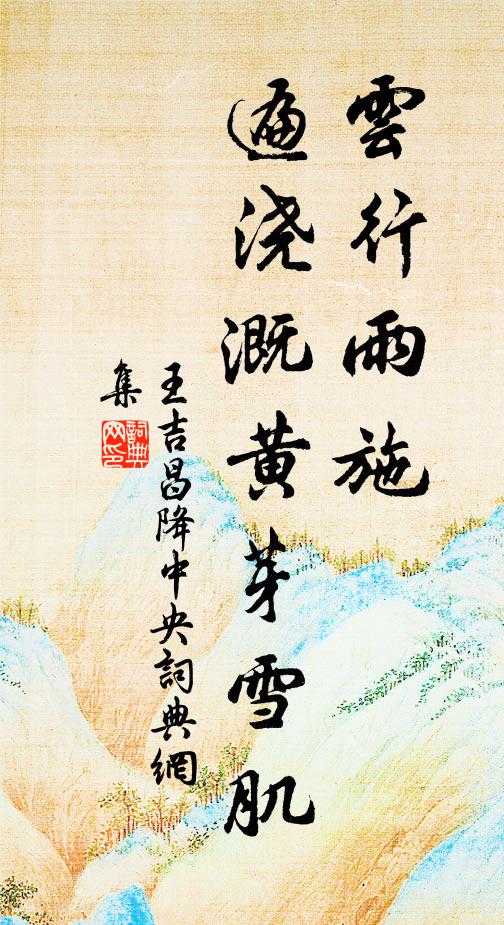 雲行雨施
遍浇溉黄芽雪肌
王吉昌降中央詞典網
集
詞典网印